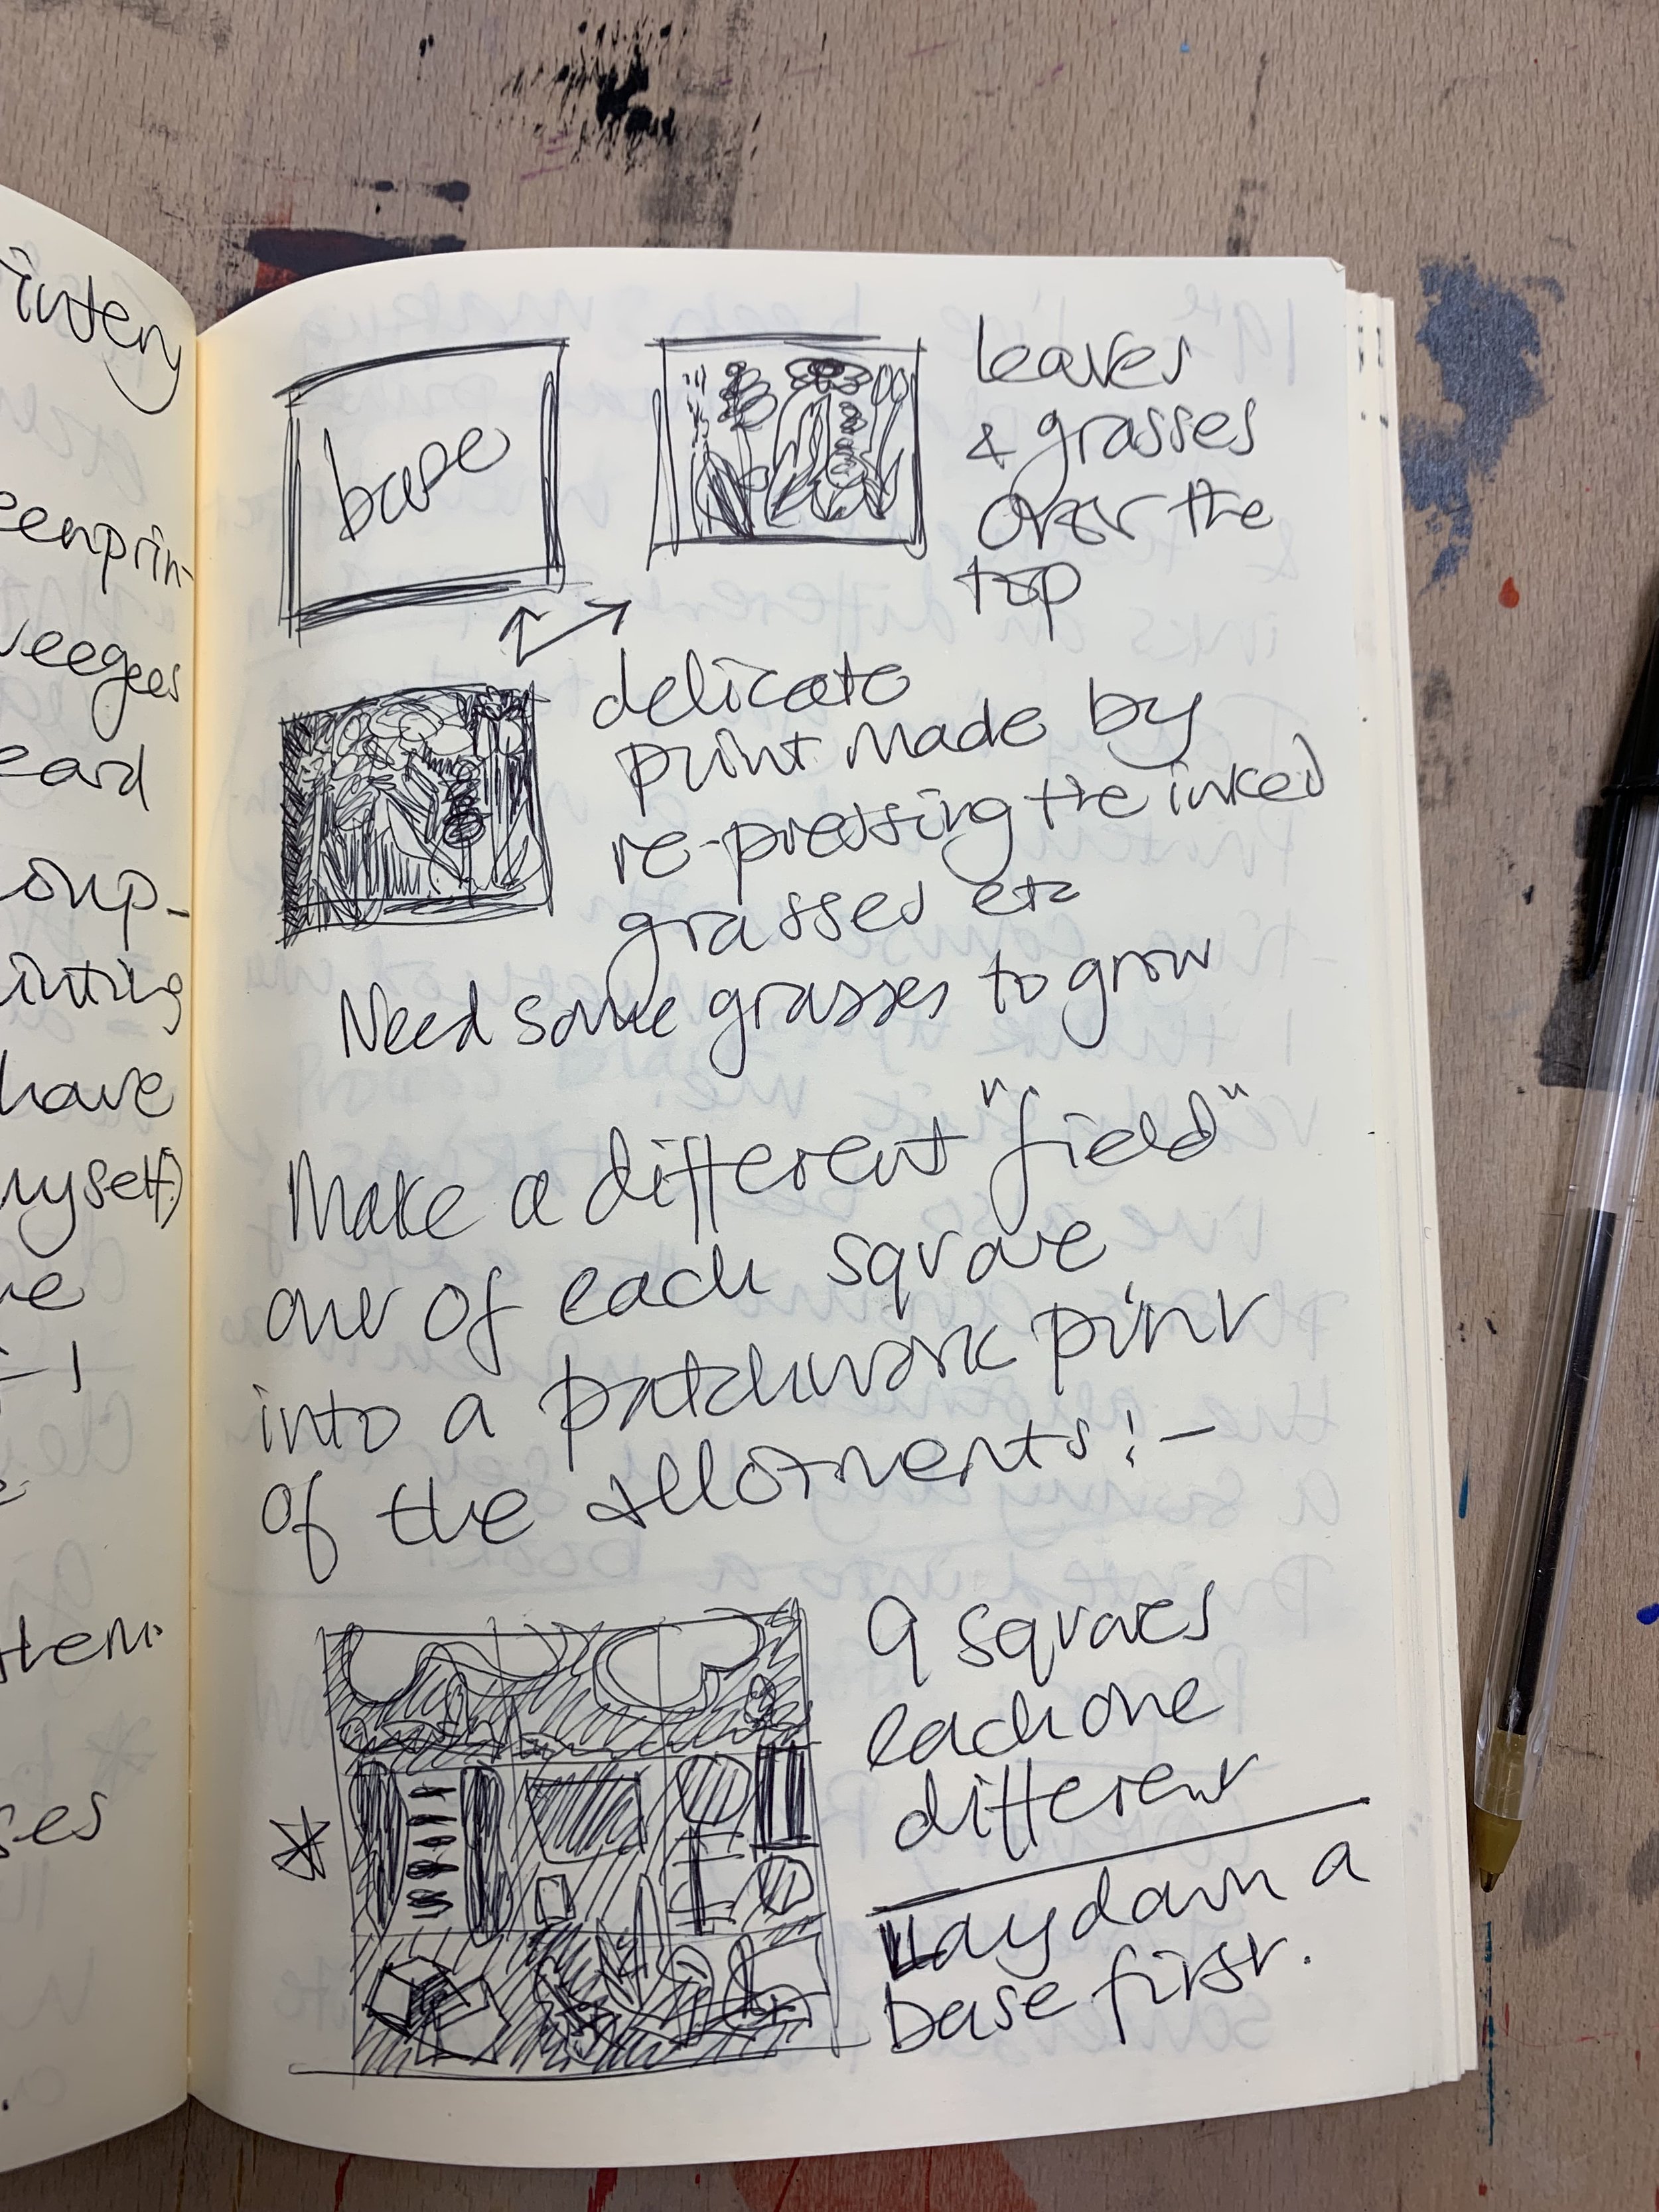 intery
eenprin-
veegees
eard
oup-
inting
have
myself)
ne
- I
e
stem.
ses
base
leaves
& grasses
over the
top
delicate
print made by
re-pressing the inked
grasses etc
Need some grasses to grow
Make a different "field"
our of each square
into a patchwork print
of the allotments! -
9 squares
each one
different
Lay down a
base first.